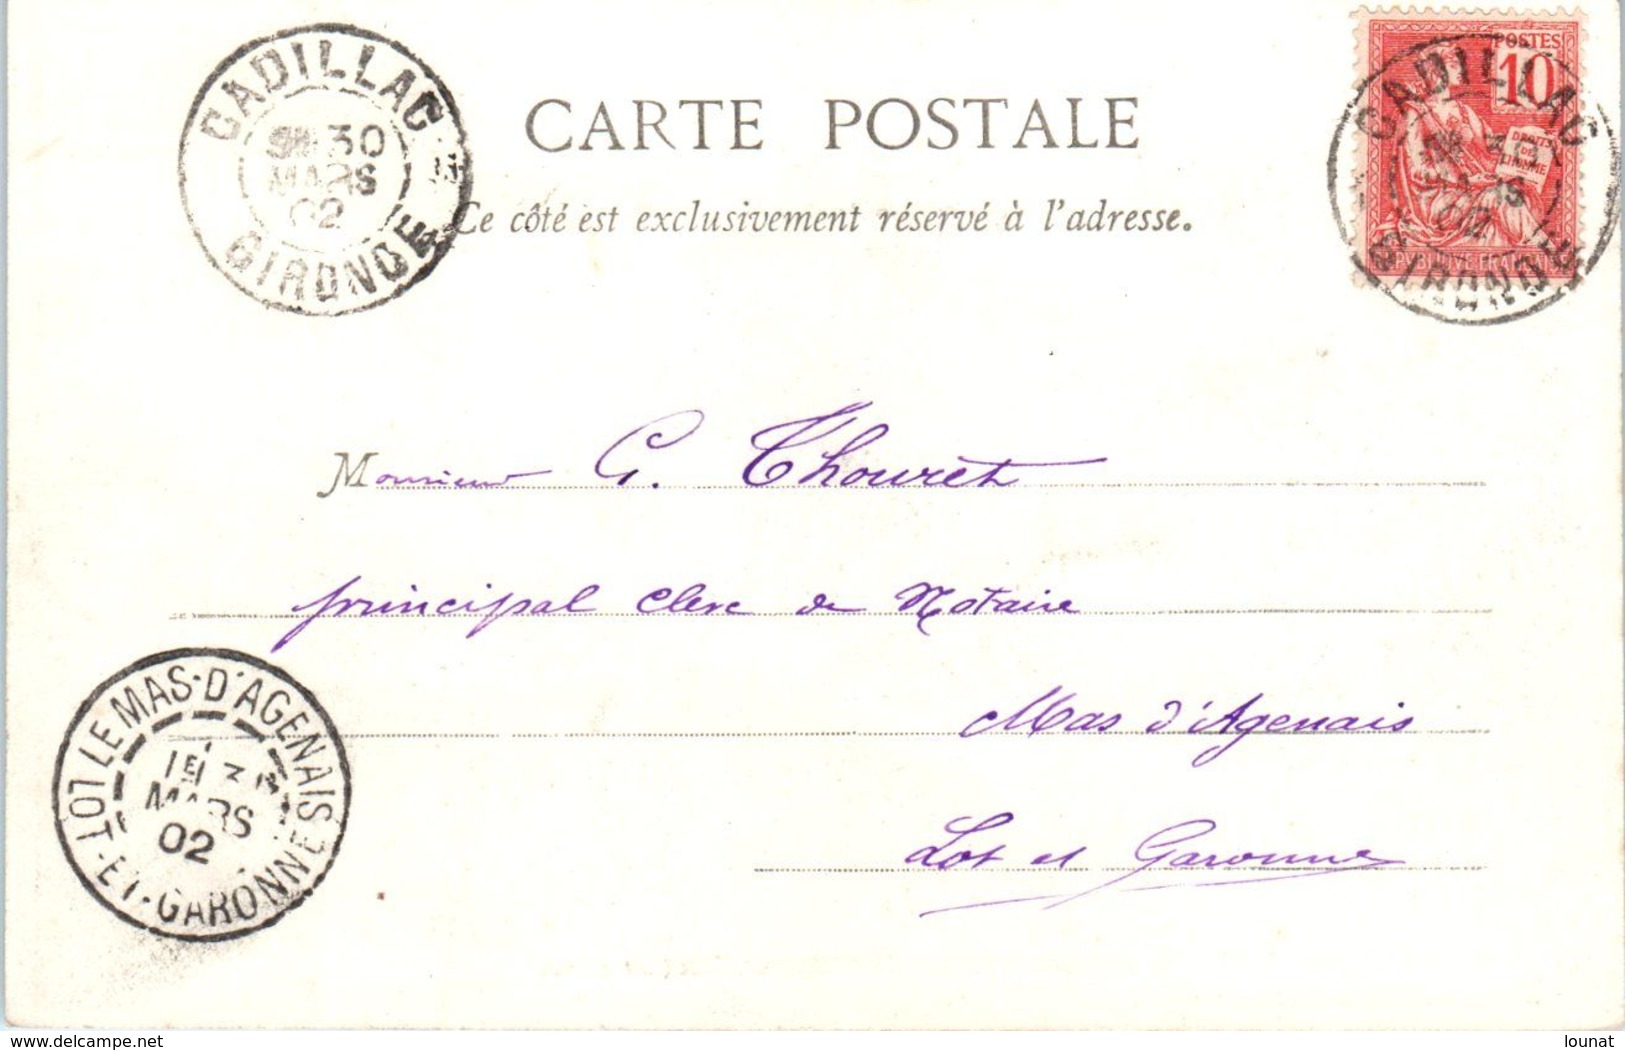 CADILLAC
30
MARS
02
GIRONDE
CARTE POSTALE
Ce côté est exclusivement réservé à l'adresse.
POSTES
10
DROITS DE L'HOMME
CADILLAC
02
GIRONDE
Monsieur G. Thouret
principal clerc de Notaire
Mas d'Agenais
Lot et Garonne
LE MAS-D'AGENAIS
1E
MARS
02
LOT-ET-GARONNE
www.delcampe.net
lounat